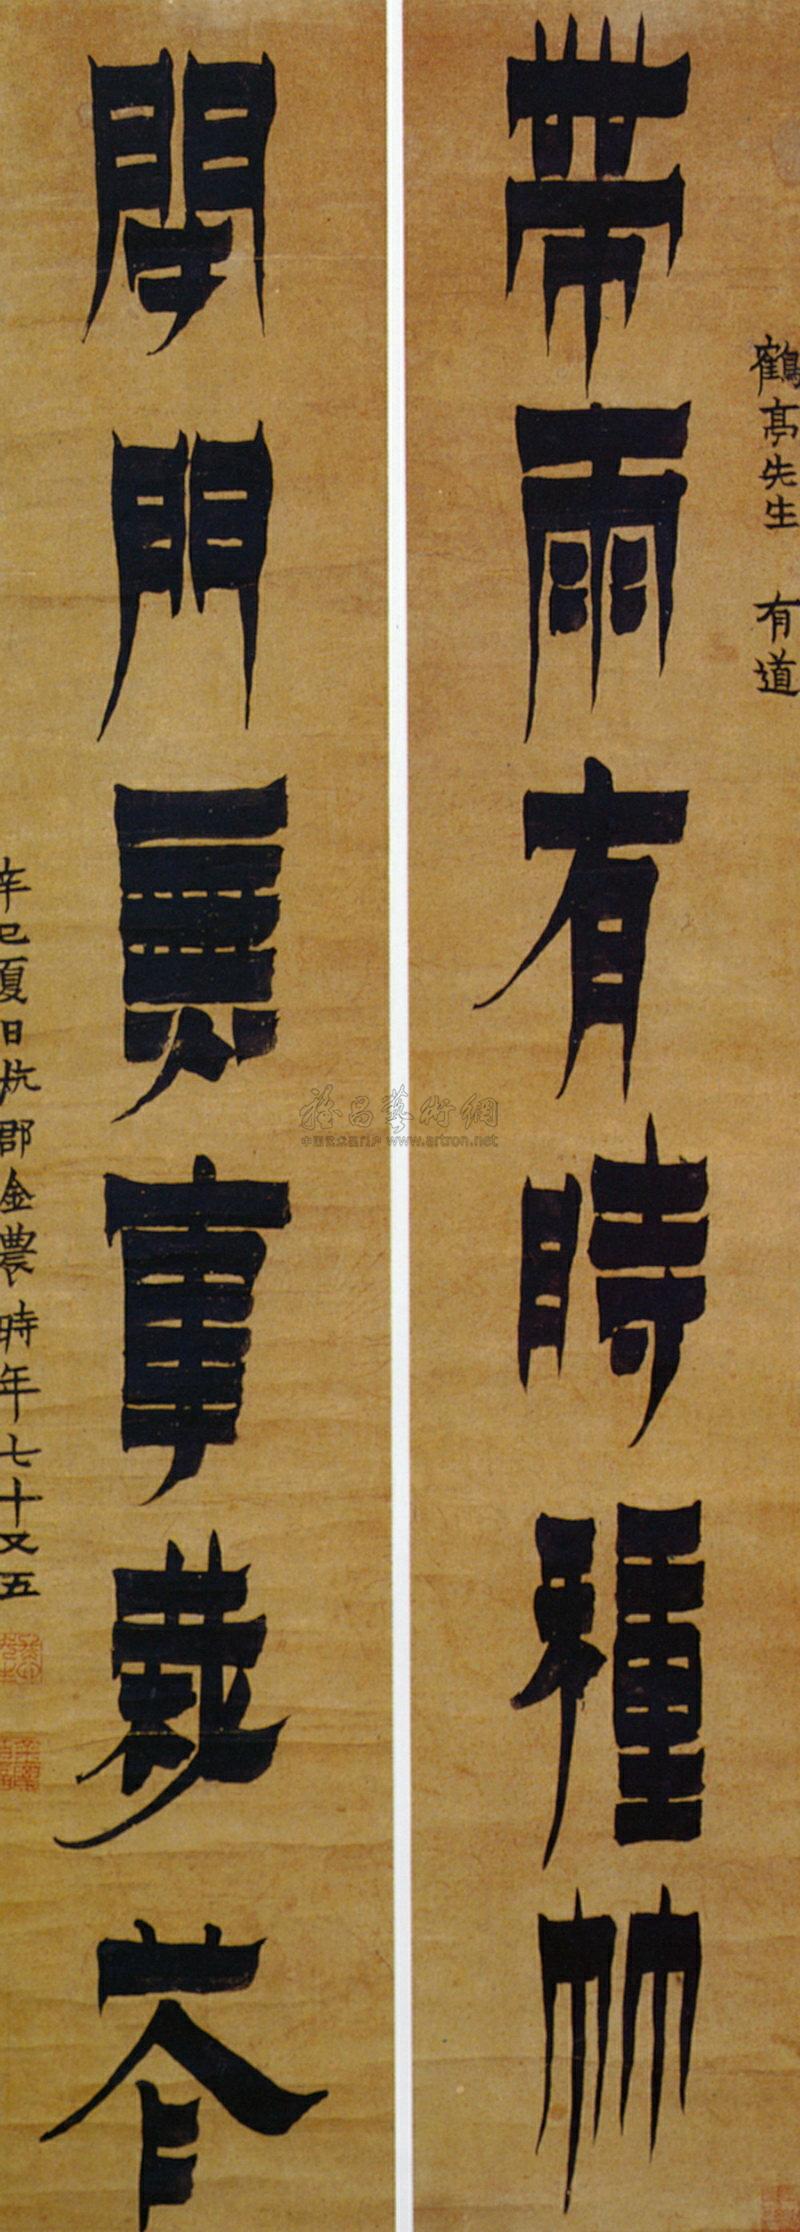 帶雨有時種竹
鶴亭先生 有道
閉門無事苓
辛巳夏日杭郡金農時年七十又五
雅昌藝術網
www.artron.net